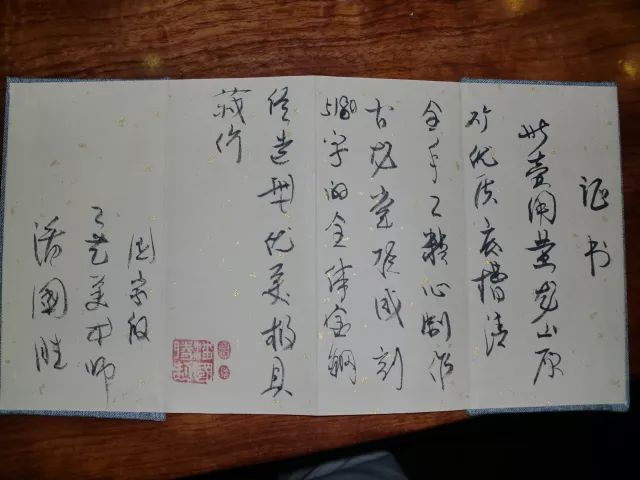 证书
此壶用黄龙山原
矿优质底槽清
全手工精心制作
而成刻
5180字的全体金刚
经造型优美极具
藏价
国家级
工艺美术师
潘国胜